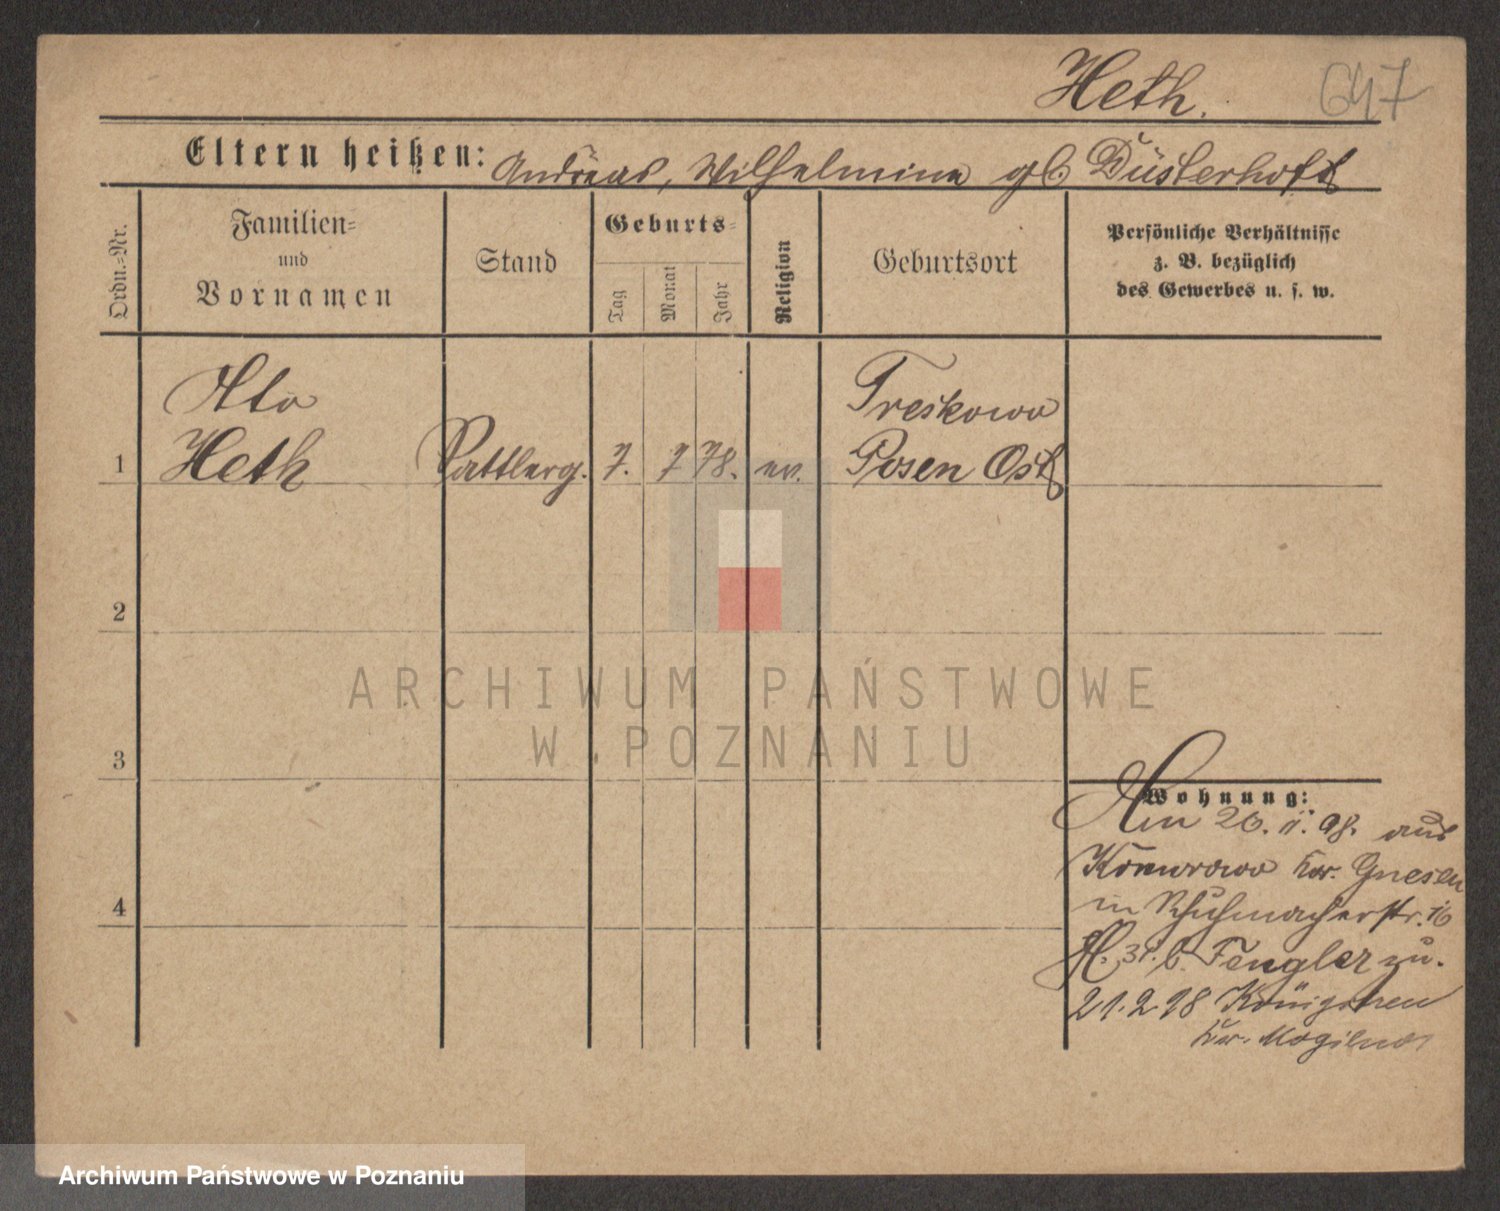 Heth. 647
Eltern heißen: Andreas, Wilhelmine gb Düsterhoft
Ordn.-Nr.
Familien-
und
Vornamen
Stand
Geburts-
Tag
Monat
Jahr
Religion
Geburtsort
Persönliche Verhältnisse
z. B. bezüglich
des Gewerbes u. s. w.
Otto
Treskowo
1 Heth Sattlerg. 7. 7 78. ev. Posen Ost
2
ARCHIWUM PAŃSTWOWE
W POZNANIU
3
Wohnung:
Am 26. 11. 98. aus
Komorowo Kr. Gnesen
in Schuhmacherstr. 16
H. 3t. b. Fengler zu.
21.2.98
Kr. Mogilno
4
Archiwum Państwowe w Poznaniu